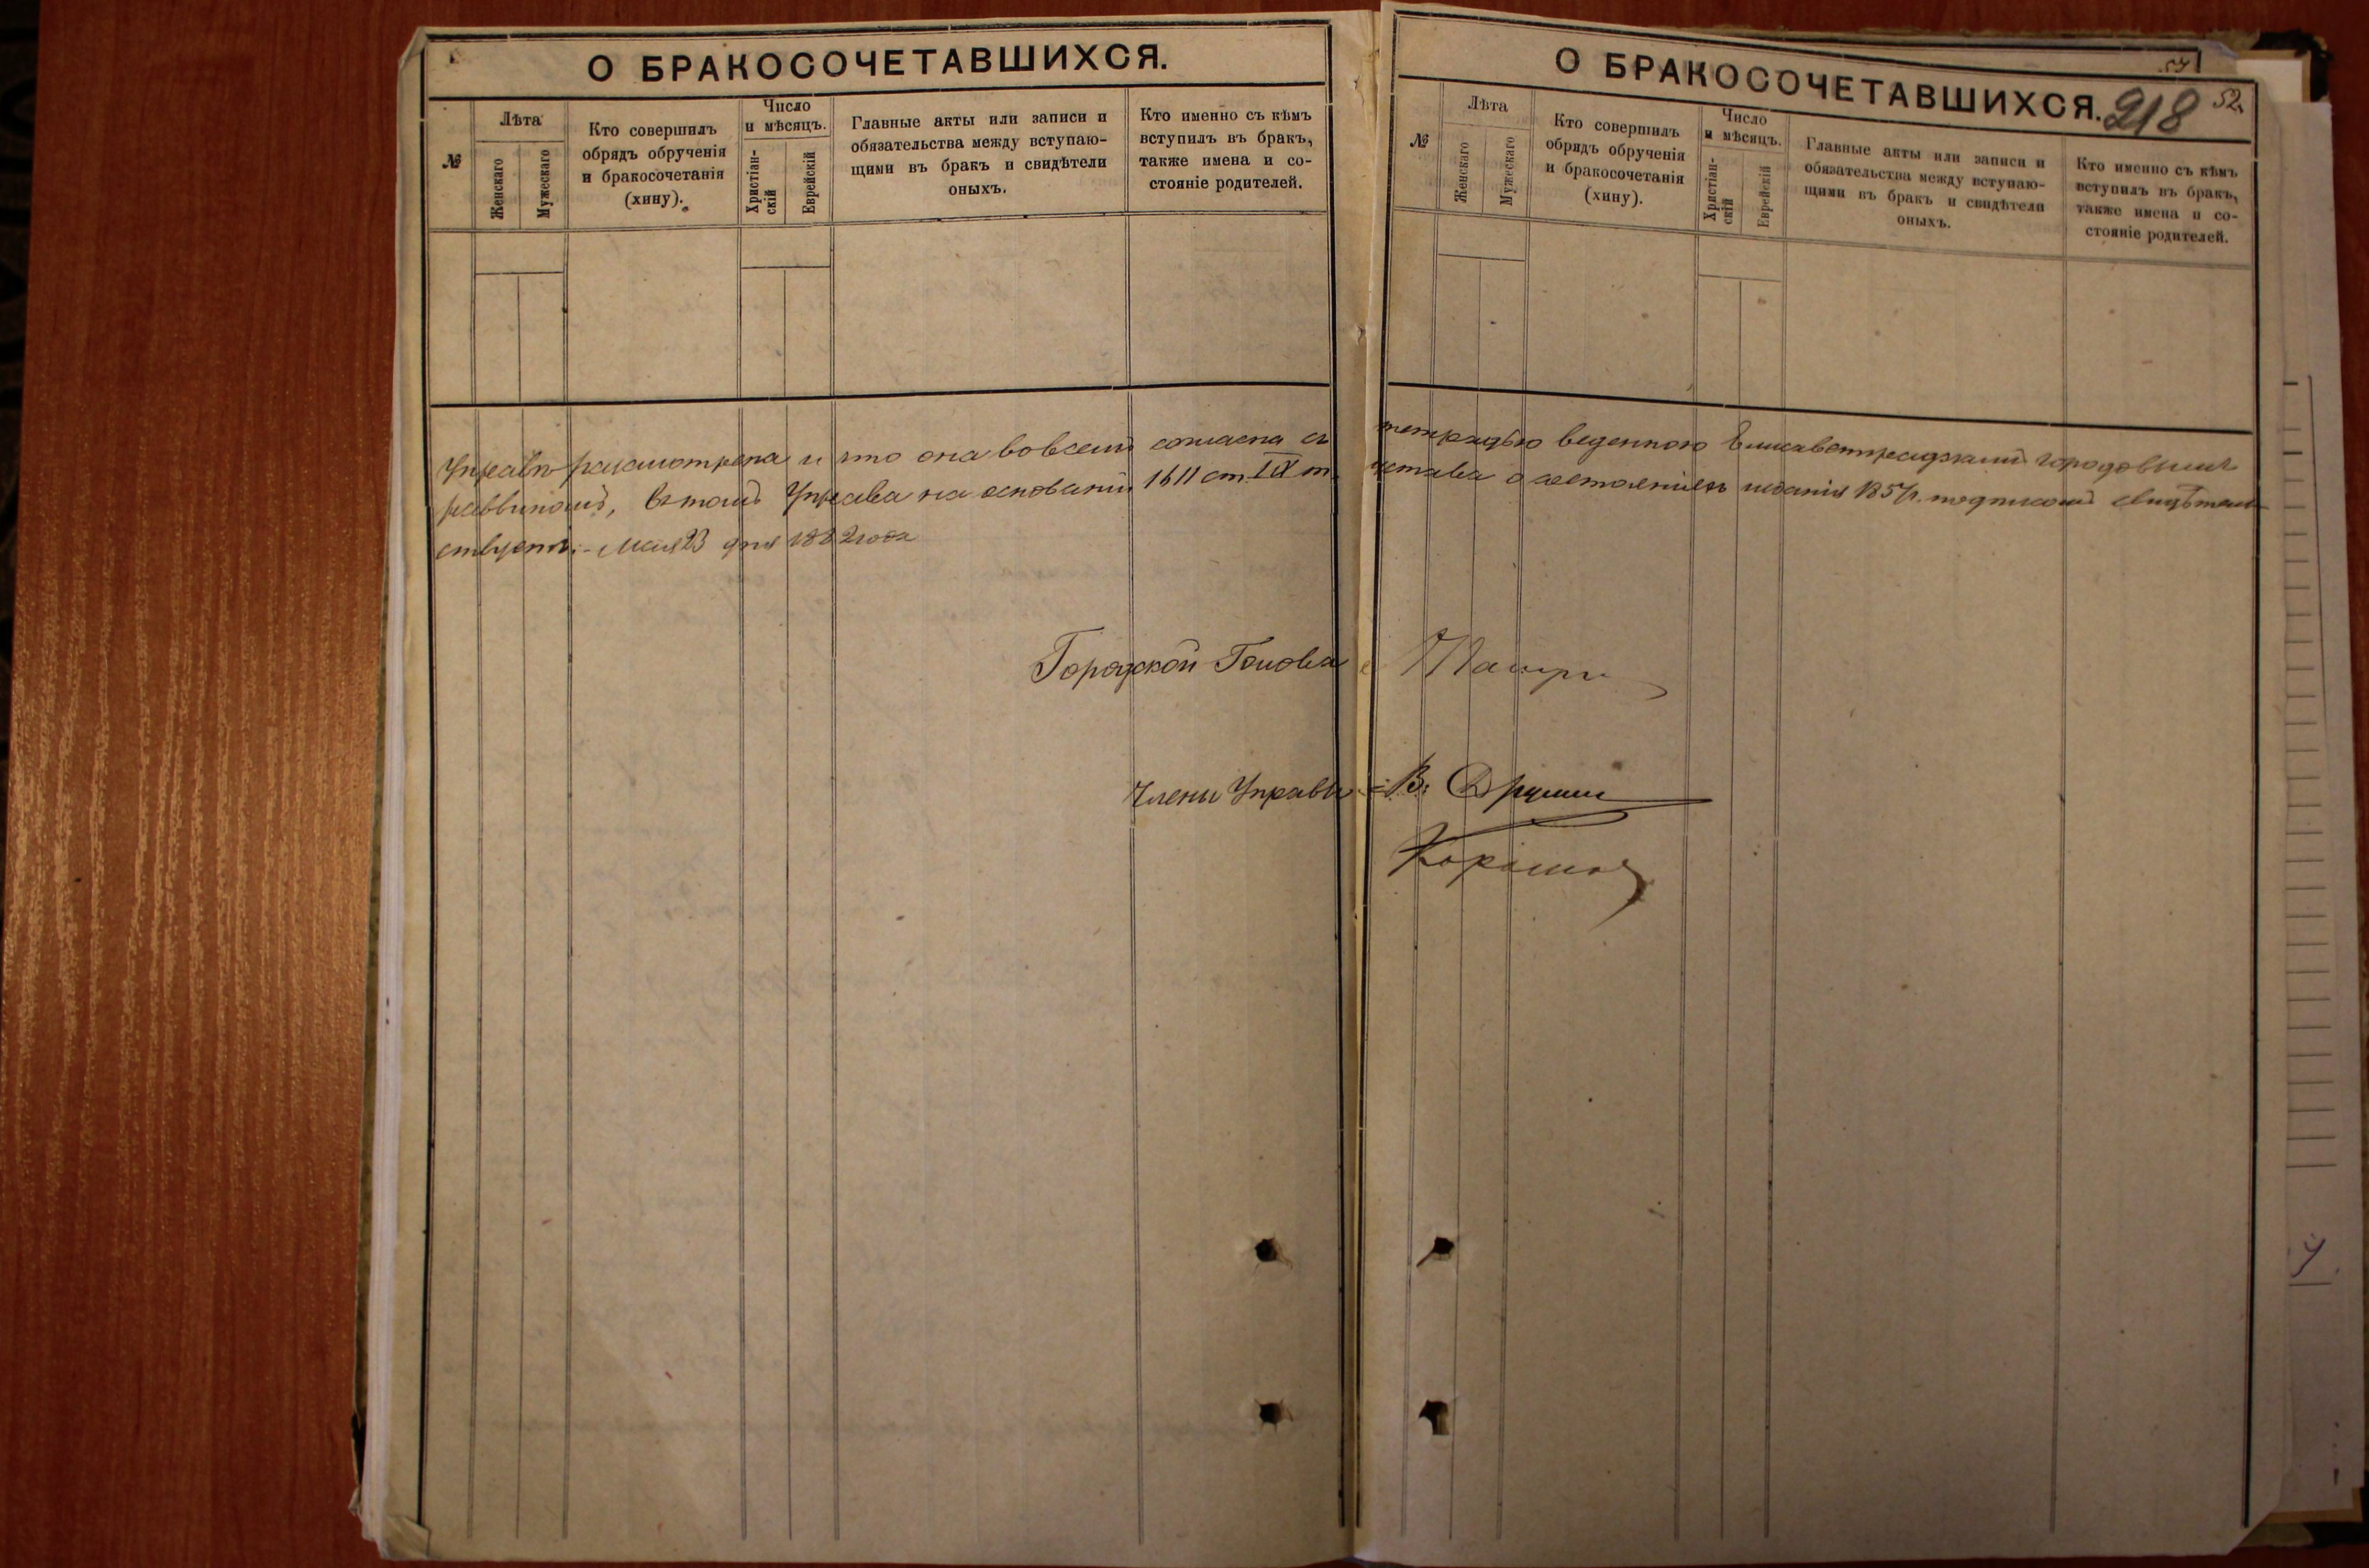 О БРАКОСОЧЕТАВШИХСЯ.
№
Лѣта
Женскаго
Мужескаго
Кто совершилъ
обрядъ обрученія
и бракосочетанія
(хину).
Число
и мѣсяцъ.
Христіан-
скій
Еврейскій
Главные акты или записи и
обязательства между вступаю-
щими въ бракъ и свидѣтели
оныхъ.
Кто именно съ кѣмъ
вступилъ въ бракъ,
также имена и со-
стояніе родителей.
О БРАКОСОЧЕТАВШИХСЯ.
218
52.
№
Лѣта
Женскаго
Мужескаго
Кто совершилъ
обрядъ обрученія
и бракосочетанія
(хину).
Число
и мѣсяцъ.
Христіан-
скій
Еврейскій
Главные акты или записи и
обязательства между вступаю-
щими въ бракъ и свидѣтели
оныхъ.
Кто именно съ кѣмъ
вступилъ въ бракъ,
также имена и со-
стояніе родителей.
Управѣ разсмотрена и что она во всемъ согласна съ тетрадью веденною Елисаветградскимъ городовымъ
раввиномъ, въ томъ Управа на основаніи 1611 ст. IX т. устава о состояніяхъ изданія 1857 г. подписомъ свидѣтель-
ствуетъ:- Мая 23 дня 1882 года
Городской Голова
Члены Управы В.